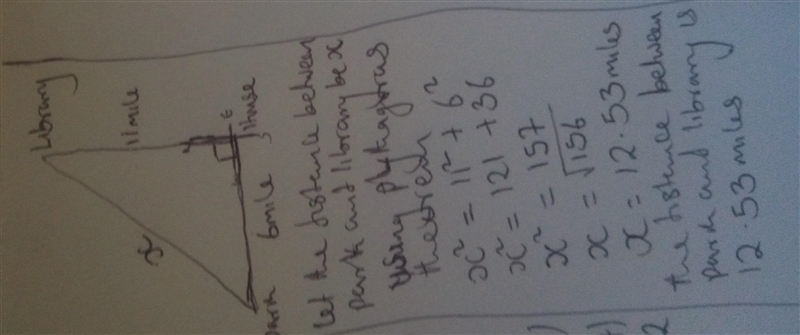 Library
11 mile
x
6 mile
House
Park
Let the distance between
park and library be x
Using Pythagoras
theorem
x² = 11² + 6²
x² = 121 + 36
x² = 157
x = √156
x = 12.53 miles
the distance between
park and library is
12.53 miles